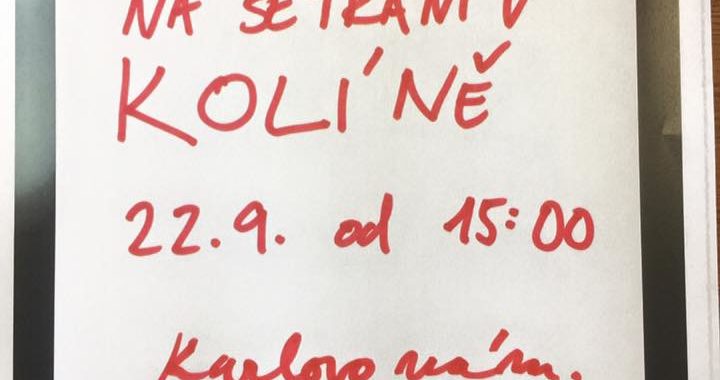 NA SETKÁNÍ V
KOLÍNĚ
22.9. od 15:00
Karlovo nám.